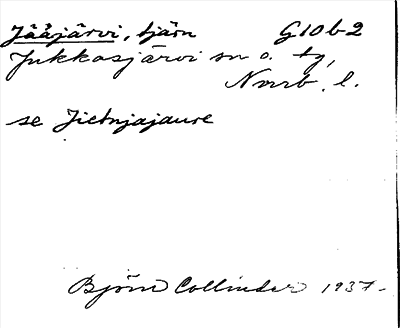 Jääjärvi, tjärn G10b2
Jukkasjärvi sn o. tg,
Norrb. l.
se Jietnjajaure
Björn Collinder 1937.